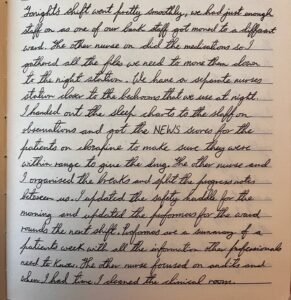 Tonight's shift went pretty smoothly, we had just enough
staff on as one of our bank staff got moved to a different
ward. The other nurse on did the medications so I
gathered all the files we need to move them down
to the night station. We have a separate nurses
station closer to the bedrooms that we use at night.
I handed out the sleep charts to the staff on
observations and got the NEWS scores for the
patients on clozapine to make sure they were
within range to give the drug. The other nurse and
I organised the breaks and split the progress notes
between us. I updated the safety huddle for the
morning and updated the proformas for the ward
rounds the next shift. Proformas are a summary of a
patients week with all the information other professionals
need to know. The other nurse focused on audits and
when I had time I cleaned the clinical room.